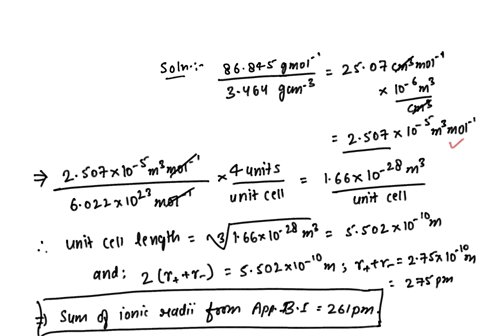 Soln:- 86.845 gmol⁻¹ / 3.464 gcm⁻³ = 25.07 cm³mol⁻¹
× 10⁻⁶m³ / cm³
= 2.507 × 10⁻⁵m³mol⁻¹
⇒ 2.507×10⁻⁵m³mol⁻¹ / 6.022×10²³ mol⁻¹ × 4 units / unit cell = 1.66×10⁻²⁸ m³ / unit cell
∴ unit cell length = ∛1.66×10⁻²⁸ m³ = 5.502×10⁻¹⁰m
and: 2(r₊+r₋) = 5.502×10⁻¹⁰m ; r₊+r₋=2.75×10⁻¹⁰m
= 275 pm
⇒ Sum of ionic radii from App. B.1 = 261pm.